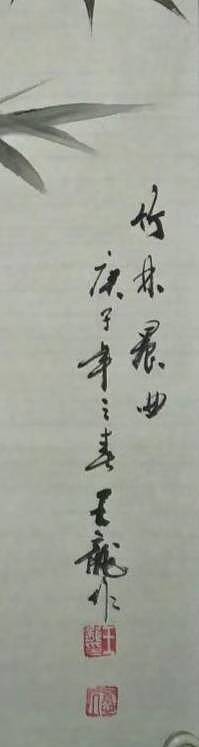 竹林晨曲
庚子年之春 王龙作